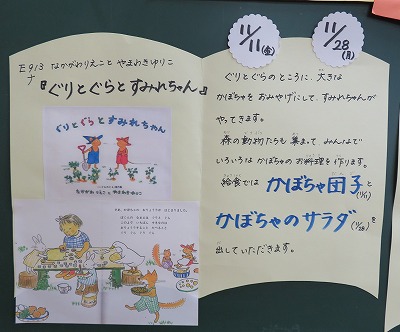 E913 なかがわりえこと やまわきゆりこ
ナ
『ぐりとぐらとすみれちゃん』
ぐりとぐらとすみれちゃん
なかがわりえこと やまわきゆりこ
11/11(金)
11/28(月)
ぐりとぐらのところに、大きな
かぼちゃをおみやげにして、すみれちゃんが
やってきます。
森の動物たちも集まって みんなで
いろいろな かぼちゃのお料理を作ります。
給食では かぼちゃ団子と
(11/11)
かぼちゃのサラダ(11/28)を
出していただきます。